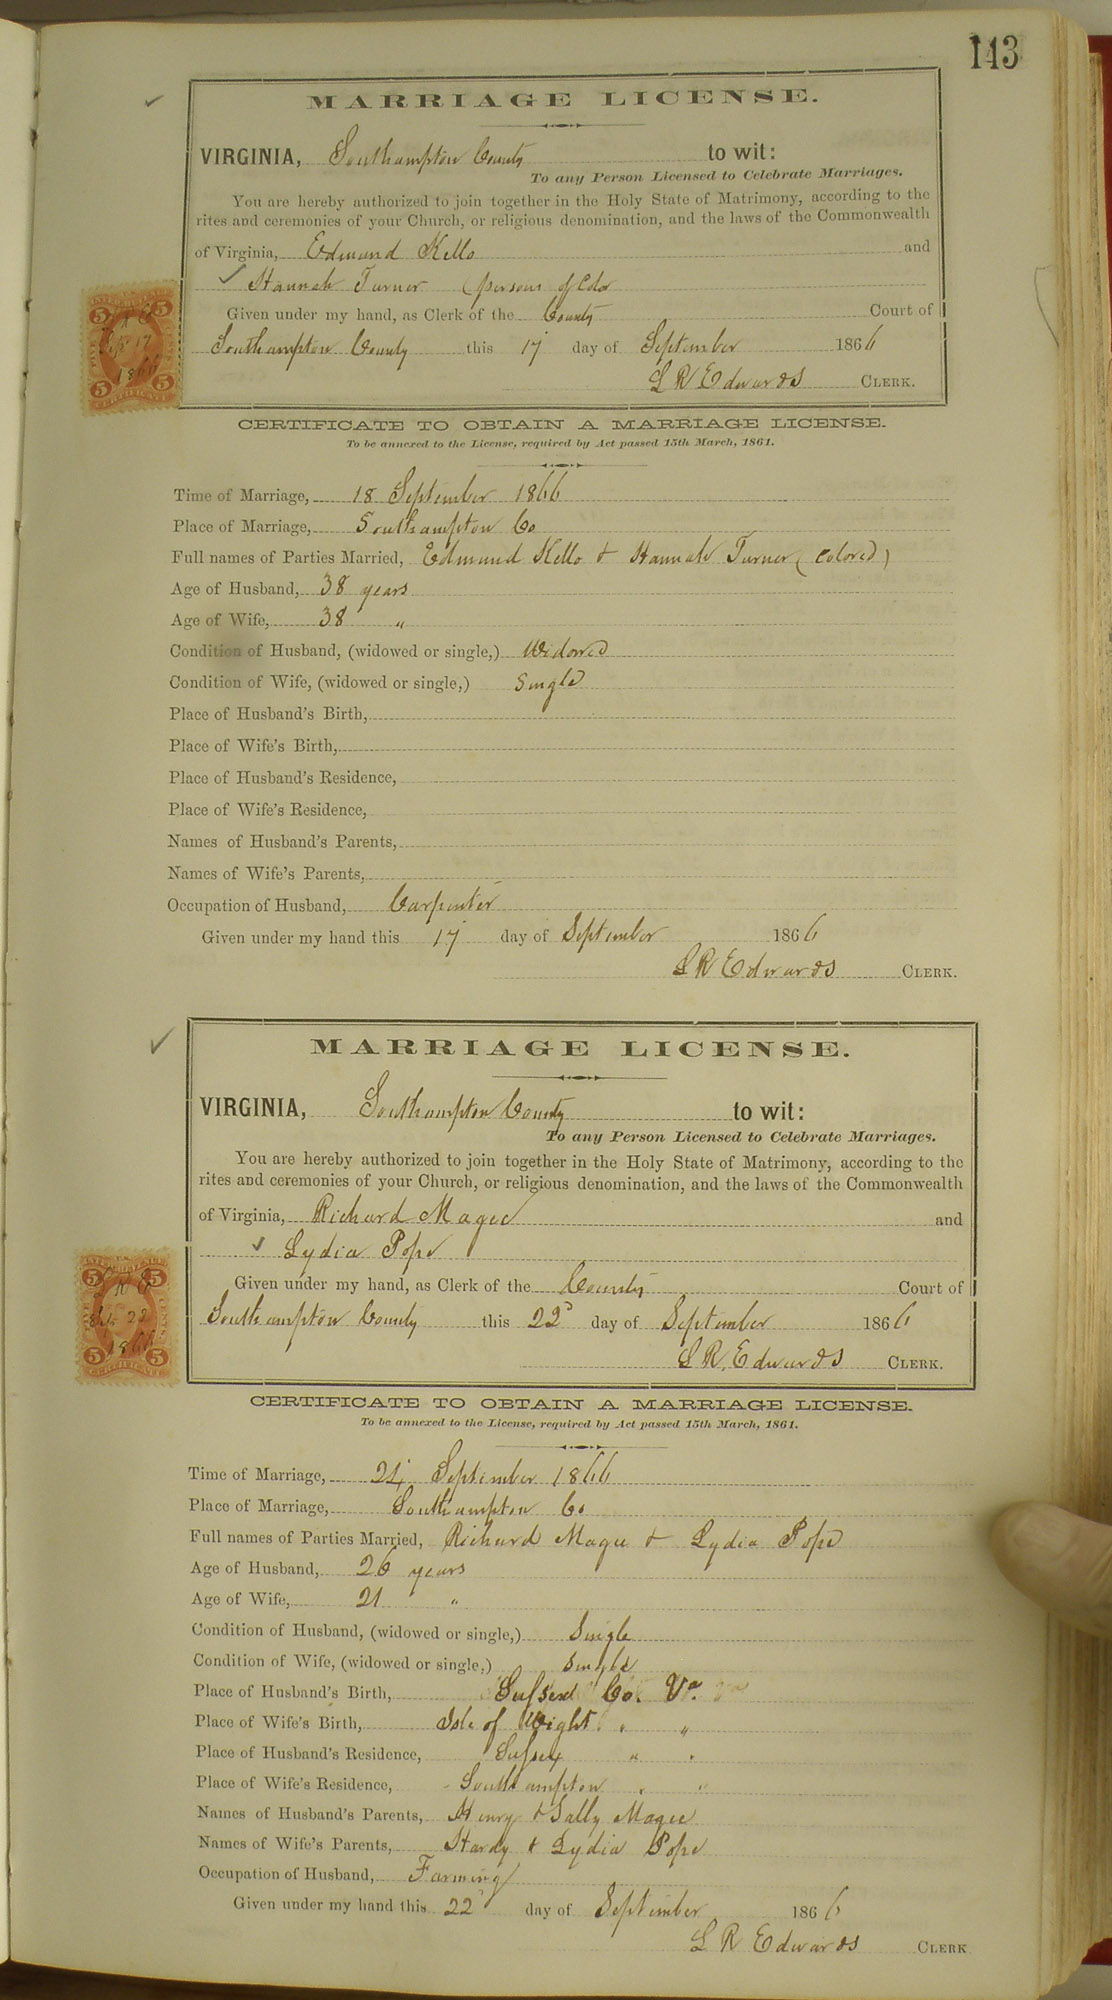 143
MARRIAGE LICENSE.
VIRGINIA, Southampton County to wit:
To any Person Licensed to Celebrate Marriages.
You are hereby authorized to join together in the Holy State of Matrimony, according to the
rites and ceremonies of your Church, or religious denomination, and the laws of the Commonwealth
of Virginia, Edmund Kello and
Hannah Turner (persons of Color
Given under my hand, as Clerk of the County Court of
Southampton County this 17 day of September 1866
L R Edwards CLERK.
CERTIFICATE TO OBTAIN A MARRIAGE LICENSE.
To be annexed to the License, required by Act passed 15th March, 1861.
Time of Marriage, 18 September 1866
Place of Marriage, Southampton Co
Full names of Parties Married, Edmund Kello & Hannah Turner (Colored)
Age of Husband, 38 years
Age of Wife, 38 "
Condition of Husband, (widowed or single,) Widowed
Condition of Wife, (widowed or single,) Single
Place of Husband's Birth,
Place of Wife's Birth,
Place of Husband's Residence,
Place of Wife's Residence,
Names of Husband's Parents,
Names of Wife's Parents,
Occupation of Husband, Carpenter
Given under my hand this 17 day of September 1866
L R Edwards CLERK.
MARRIAGE LICENSE.
VIRGINIA, Southampton County to wit:
To any Person Licensed to Celebrate Marriages.
You are hereby authorized to join together in the Holy State of Matrimony, according to the
rites and ceremonies of your Church, or religious denomination, and the laws of the Commonwealth
of Virginia, Richard Magee and
Lydia Pope
Given under my hand, as Clerk of the County Court of
Southampton County this 22d day of September 1866
L R. Edwards CLERK.
CERTIFICATE TO OBTAIN A MARRIAGE LICENSE.
To be annexed to the License, required by Act passed 15th March, 1861.
Time of Marriage, September 1866
Place of Marriage, Southampton Co
Full names of Parties Married, Richard Magee & Lydia Pope
Age of Husband, 26 years
Age of Wife, 21 "
Condition of Husband, (widowed or single,) Single
Condition of Wife, (widowed or single,) Single
Place of Husband's Birth, Sussex Co. Va.
Place of Wife's Birth, Isle of Wight " "
Place of Husband's Residence, Sussex " "
Place of Wife's Residence, Southampton " "
Names of Husband's Parents, Henry & Sally Magee
Names of Wife's Parents, Hardy & Lydia Pope
Occupation of Husband, Farming
Given under my hand this 22 day of September 1866
L R Edwards CLERK